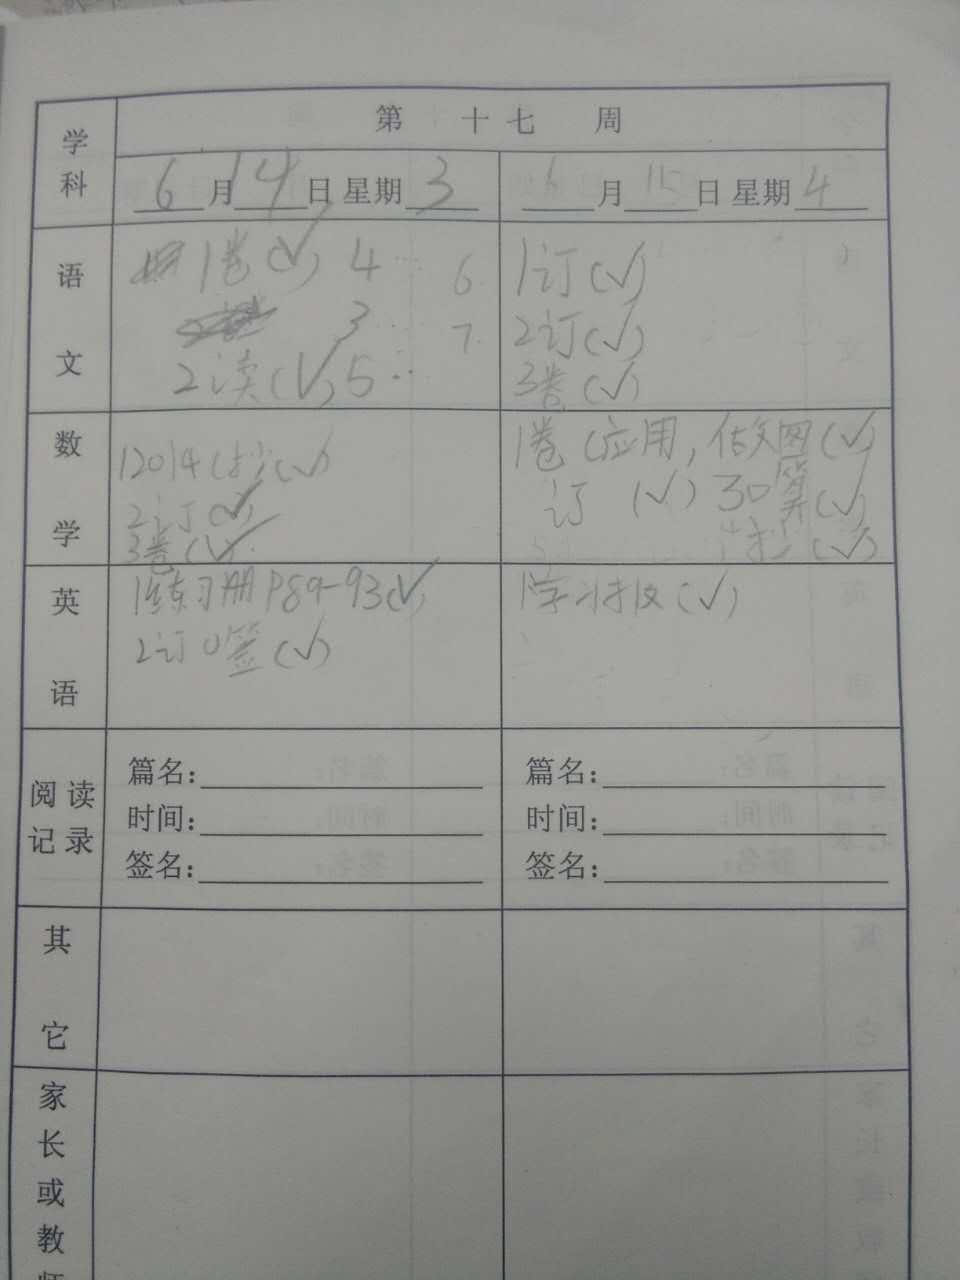 学科
第 十七 周
6月14日 星期3
6月15日 星期4
语文
1卷(√) 4 6
3 7
2读(√) 5
1订(√)
2订(√)
3卷(√)
数学
1 2014(√)
2订(√)
3卷(√)
1卷(应用,做图(√)
订 (√) 30算(√)
(√)
英语
1练习册P89-93(√)
2订 签(√)
1学习报(√)
阅读记录
篇名:
时间:
签名:
篇名:
时间:
签名:
其它
家长或教师